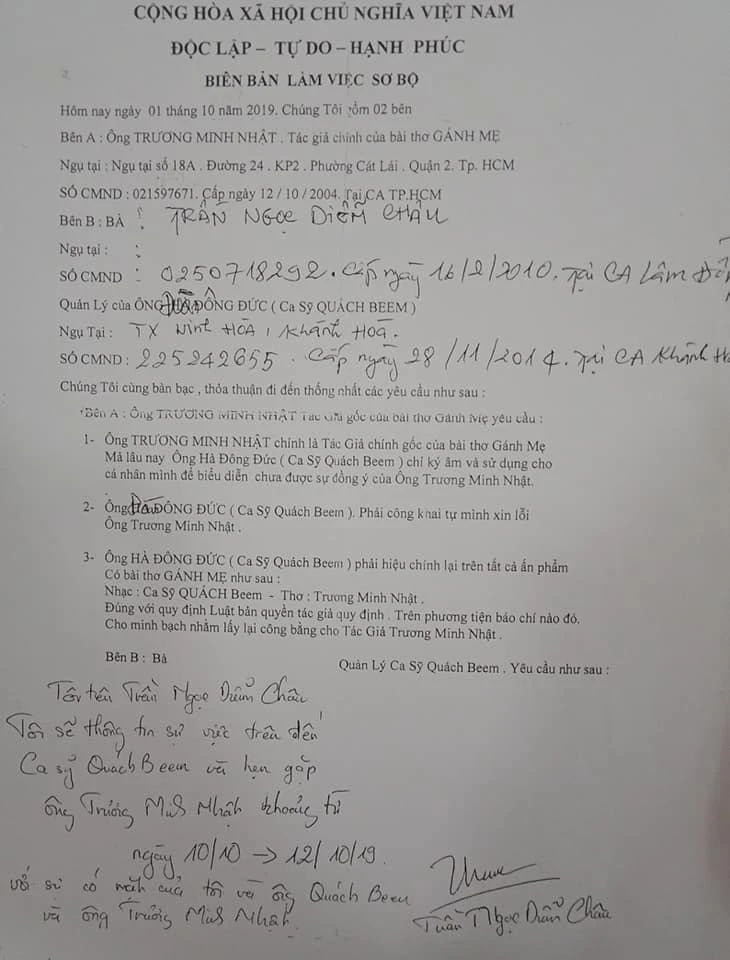 CỘNG HÒA XÃ HỘI CHỦ NGHĨA VIỆT NAM
ĐỘC LẬP – TỰ DO – HẠNH PHÚC
BIÊN BẢN LÀM VIỆC SƠ BỘ
Hôm nay ngày 01 tháng 10 năm 2019. Chúng Tôi gồm 02 bên
Bên A : Ông TRƯƠNG MINH NHẬT . Tác giả chính của bài thơ GÁNH MẸ
Ngụ tại : Ngụ tại số 18A . Đường 24 . KP2 . Phường Cát Lái . Quận 2. Tp. HCM
SỐ CMND : 021597671. Cấp ngày 12 / 10 / 2004. Tại CA TP.HCM
Bên B : BÀ : TRẦN NGỌC DIỄM CHÂU
Ngụ tại :
SỐ CMND : 0250718292. Cấp ngày 16/2/2010. Tại CA Lâm
Quản Lý của ÔNG ĐÔNG ĐỨC ( Ca Sỹ QUÁCH BEEM )
Ngụ Tại : TX Ninh HÒA, Khánh HOÀ.
SỐ CMND : 225242655 . Cấp ngày 28/11/2014. Tại CA Khánh
Chúng Tôi cùng bàn bạc , thỏa thuận đi đến thống nhất các yêu cầu như sau :
*Bên A : Ông TRƯƠNG MINH NHẬT Tác Giả gốc của bài thơ Gánh Mẹ yêu cầu :
1- Ông TRƯƠNG MINH NHẬT chính là Tác Giả chính gốc của bài thơ Gánh Mẹ
Mà lâu nay Ông Hà Đông Đức ( Ca Sỹ Quách Beem ) chỉ ký âm và sử dụng cho
cá nhân mình để biểu diễn chưa được sự đồng ý của Ông Trương Minh Nhật.
2- Ông ĐÔNG ĐỨC ( Ca Sỹ Quách Beem ). Phải công khai tự mình xin lỗi
Ông Trương Minh Nhật .
3- Ông HÀ ĐÔNG ĐỨC ( Ca Sỹ Quách Beem ) phải hiệu chính lại trên tất cả ấn phẩm
Có bài thơ GÁNH MẸ như sau :
Nhạc : Ca Sỹ QUÁCH Beem - Thơ : Trương Minh Nhật .
Đúng với quy định Luật bản quyền tác giả quy định . Trên phương tiện báo chí nào đó.
Cho minh bạch nhằm lấy lại công bằng cho Tác Giả Trương Minh Nhật .
Bên B : Bà Quản Lý Ca Sỹ Quách Beem . Yêu cầu như sau :
Tôi tên Trần Ngọc Diễm Châu
Tôi sẽ thông tin sự việc trên đến
Ca sỹ Quách Beem và hẹn gặp
ông Trương Minh Nhật khoảng từ
ngày 10/10 → 12/10/19.
với sự có mặt của tôi và ông Quách Beem
và ông Trương Minh Nhật.
Trần Ngọc Diễm Châu